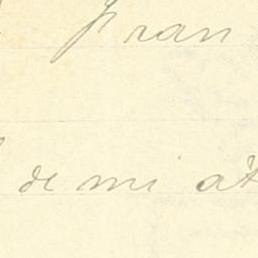 fran
de mi at